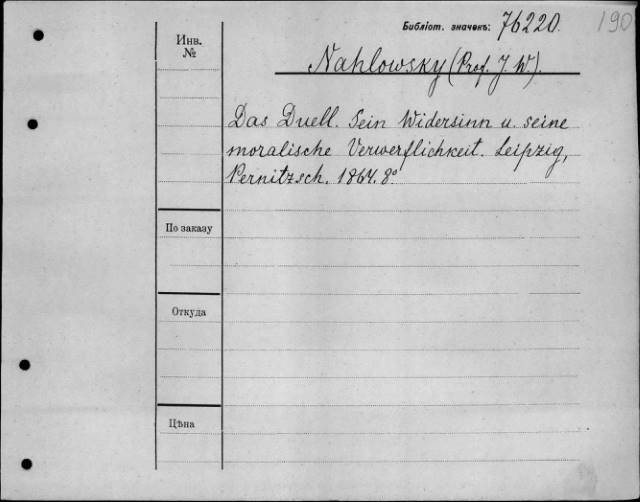 Библіот. значекъ: 76220. 190
Инв. №
Nahlowsky (Prof. J. W.).
Das Duell. Sein Widersinn u. seine
moralische Verwerflichkeit. Leipzig,
Pernitzsch. 1864. 8°
По заказу
Откуда
Цѣна